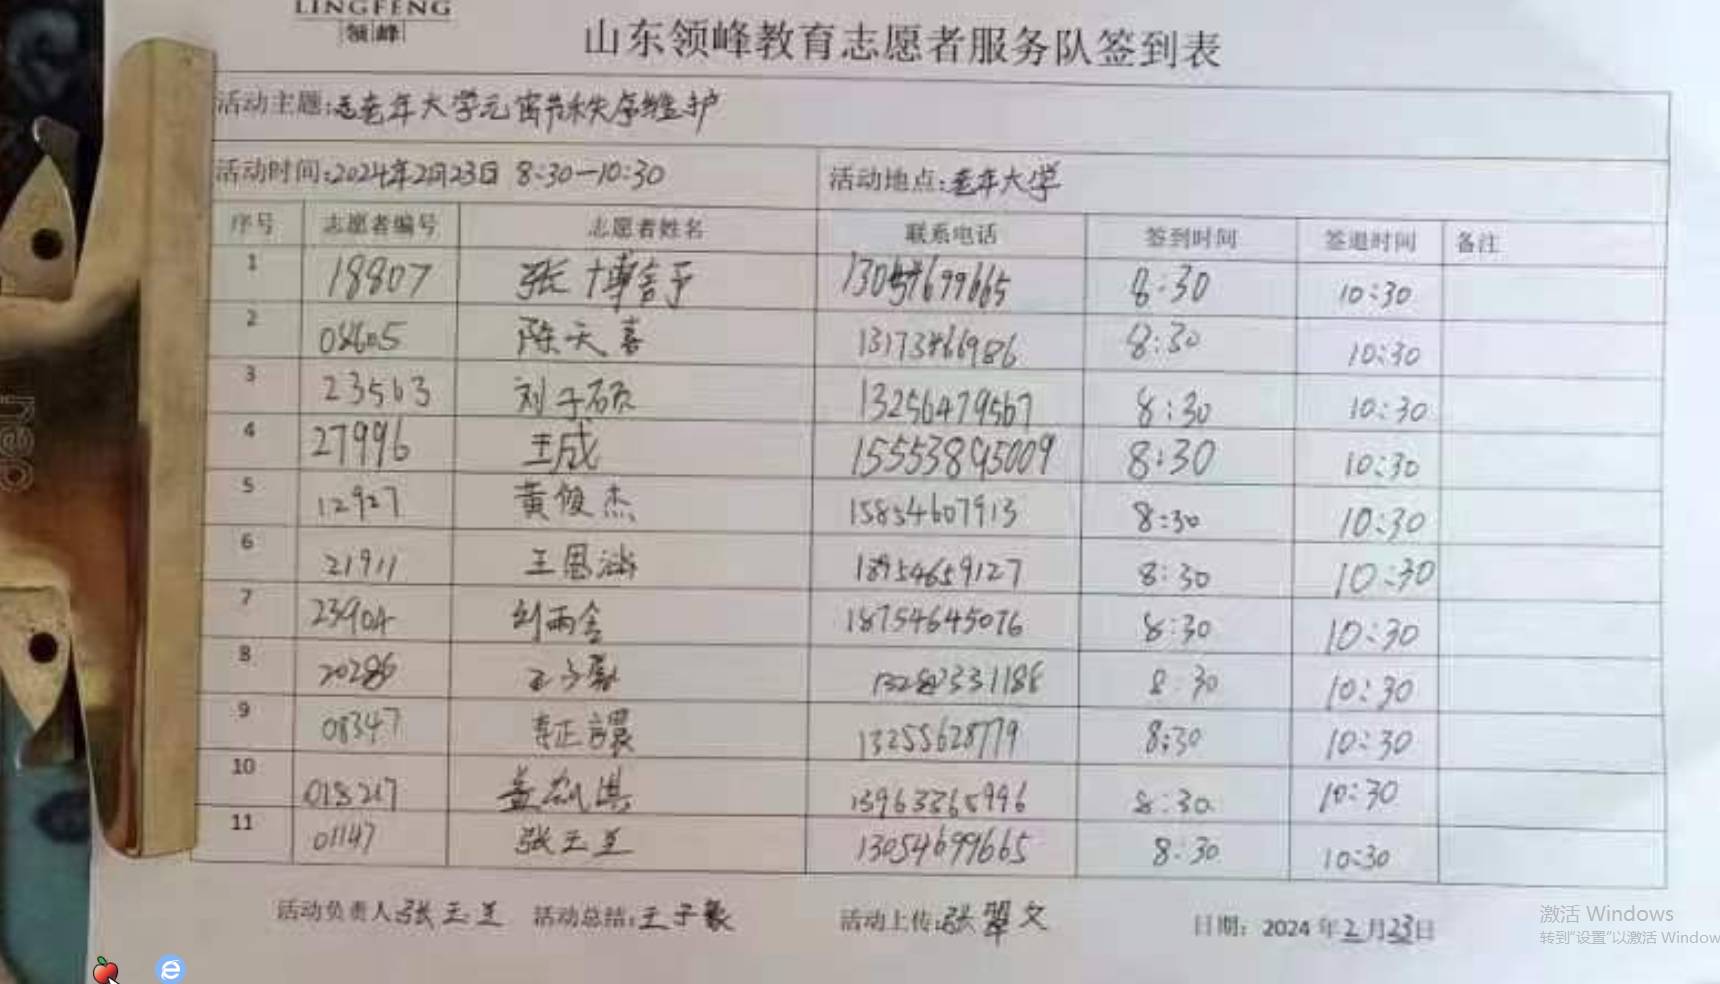 LINGFENG
领峰
山东领峰教育志愿者服务队签到表
活动主题:老年大学元宵节秩序维护
活动时间:2024年2月23日 8:30—10:30 活动地点:老年大学
序号 志愿者编号 志愿者姓名 联系电话 签到时间 签退时间 备注
1 18807 张博 8:30 10:30
2 陈天喜 8:30 10:30
3 23563 刘子硕 13256479567 8:30 10:30
4 27996 王成 15553895009 8:30 10:30
5 12927 黄俊杰 15854607913 8:30 10:30
6 21911 王恩涵 18954659127 8:30 10:30
7 刘雨 18754645076 8:30 10:30
8 王子 8:30 10:30
9 08347 李正 13255628779 8:30 10:30
10 018217 8:30 10:30
11 01147 张玉兰 13054699665 8:30 10:30
活动负责人 张玉兰 活动总结:王子 活动上传:张翠文 日期: 2024年2月23日
激活 Windows
转到"设置"以激活 Window